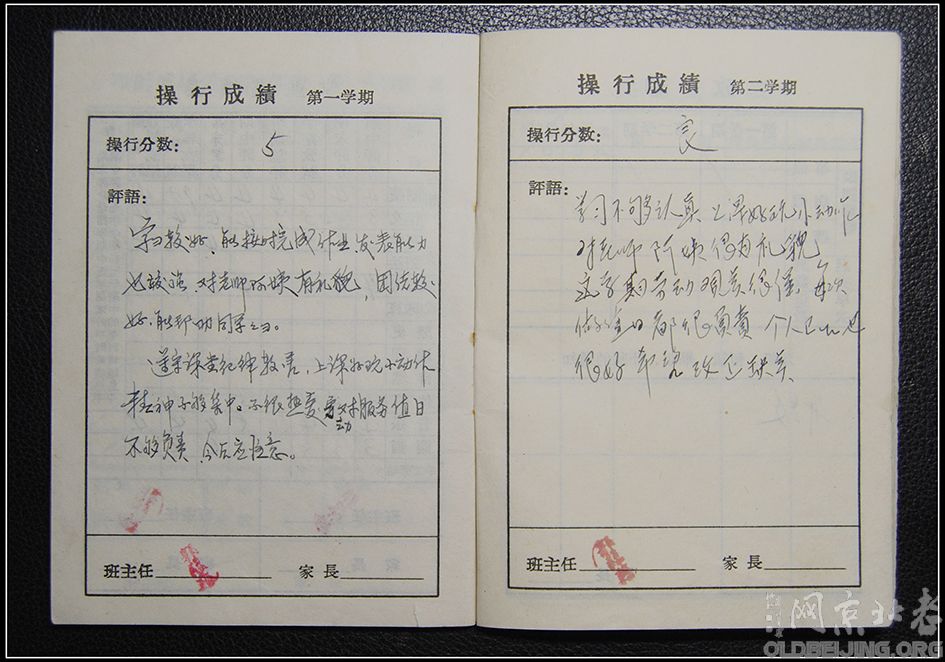 操行成績 第一学期
操行分数: 5
評語:
学习较好,能按时完成作业发表能力
也较强 对老师阿姨有礼貌,团结较
好,能帮助同学
遵守课堂纪律较差,上课好玩小动作
精神不够集中。不很热爱劳动 对服务值日
不够负责 今后应注意。
班主任 家長
操行成績 第二学期
操行分数: 良
評語:
学习不够认真 上课好玩小动作
对老师 阿姨很有礼貌
这学期劳动观点很强 每次
做值日都很负责 个人卫生也
很好 希望改正缺点
班主任 家長
老北京网
OLDBEIJING.ORG